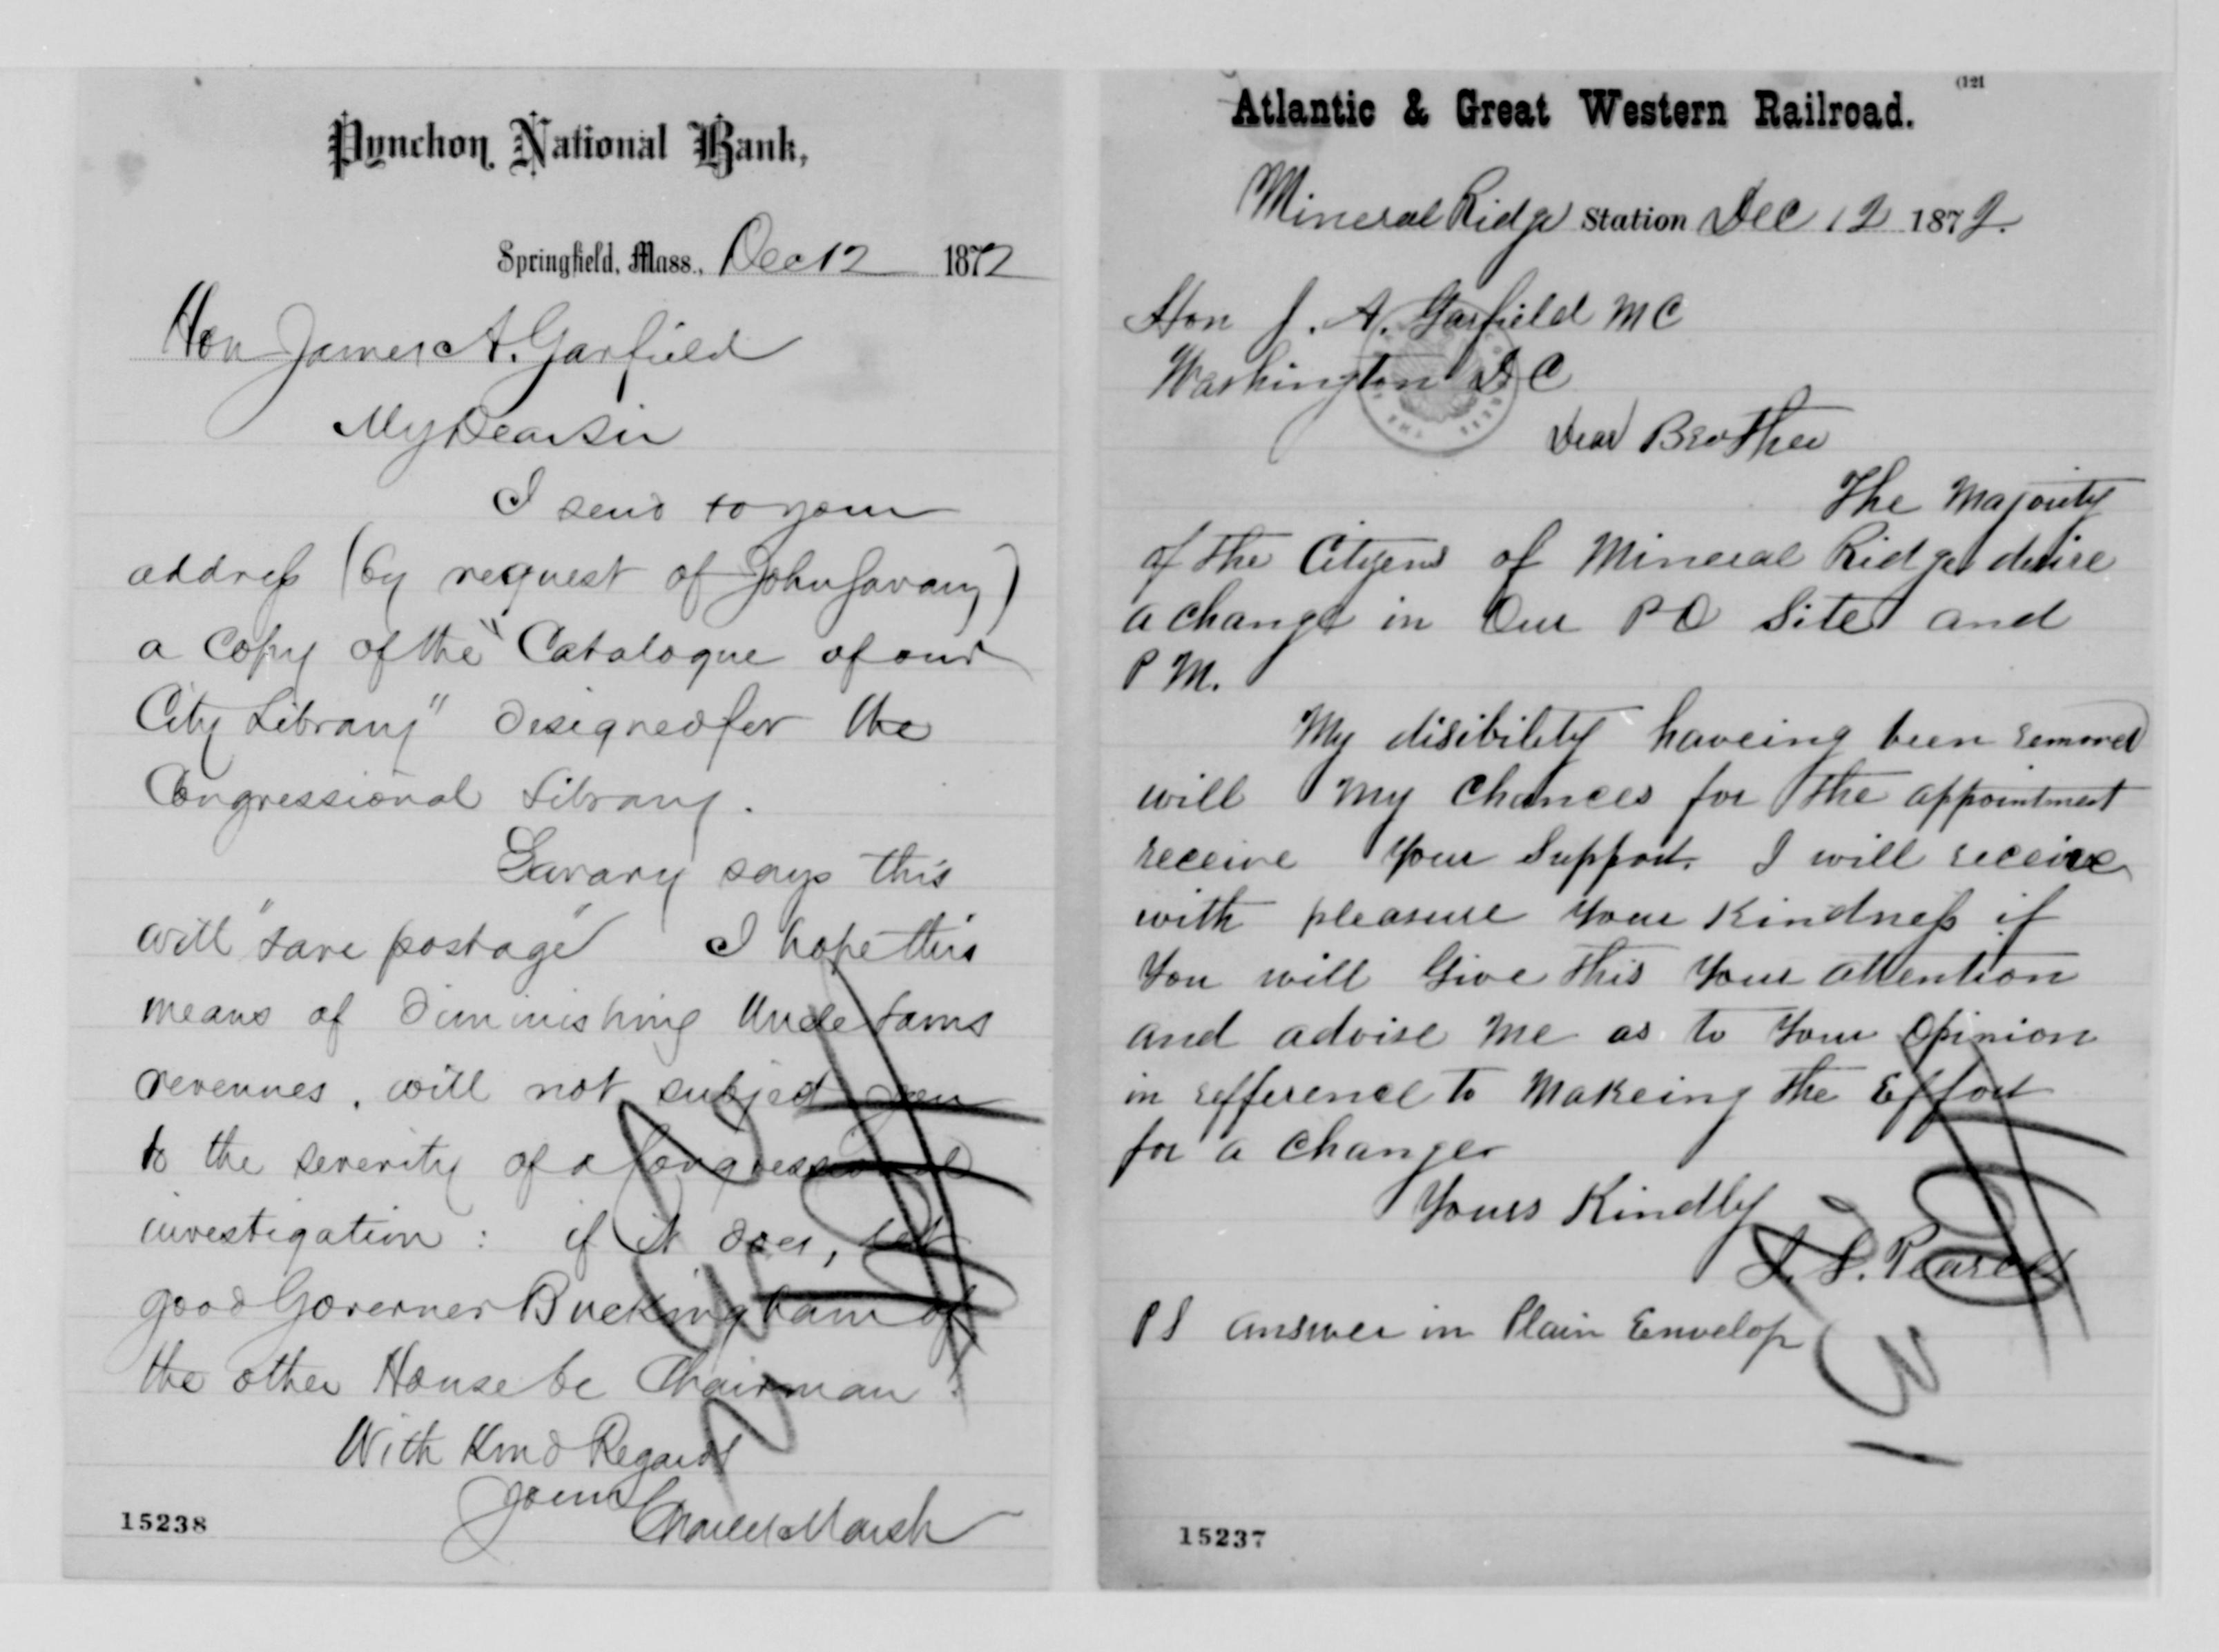 Pynchon National Bank,
Springfield, Mass., Dec 12 1872
Hon James A. Garfield
My Dear Sir
I send to your
address (by request of John Savary)
a copy of the "Catalogue of our
City Library" designed for the
Congressional Library.
Savary says this
will "save postage" I hope this
means of diminishing Uncle Sams
revenues, will not subject you
to the severity of a Congressional
investigation: if it does, let
good Governer Buckingham of
the other House be Chairman.
With Kind Regards
Yours
Charles Marsh
15238
(121
Atlantic & Great Western Railroad.
Mineral Ridge Station Dec 12 1872.
Hon J. A. Garfield M C
Washington D C
Dear Brother
The Majority
of the Citizens of Mineral Ridge desire
a change in Our P O Site and
P M.
My disibility haveing been removed
will My Chances for the appointment
receive Your Support. I will receive
with pleasure Your Kindness if
You will Give this Your attention
and advise Me as to Your Opinion
in refference to Makeing the Effort
for a Change
Yours Kindly
S. Pearce
P S answer in Plain Envelop
15237